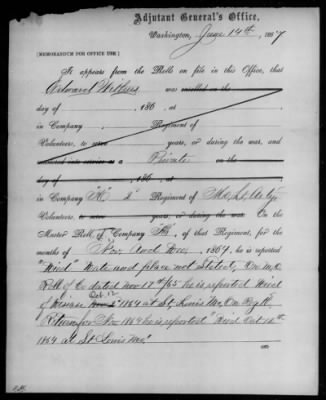 Adjutant General's Office,
Washington, June 14th, 1867
[MEMORANDUM FOR OFFICE USE.]
It appears from the Rolls on file in this Office, that
Edward Withers was enrolled on the
day of , 186 , at
in Company , Regiment of
Volunteers, to serve years, or during the war, and
mustered into service as a Private on the
day of , 186 , at
in Company "K" 2" Regiment of Mo. Lt. Arty
Volunteers, to serve years, or during the war. On the
Muster Roll of Company K, of that Regiment, for the
months of Nov. And Dec, 1864, he is reported
"Died" Date and place not Stated, On M.O.
Roll of Co dated Nov 17th /65 he is reported Died
of Disease Oct 12 1864 at St. Louis Mo. On Regtl
Return for Nov 1864 he is reported "Died Oct 12th
1864 at St Louis Mo."